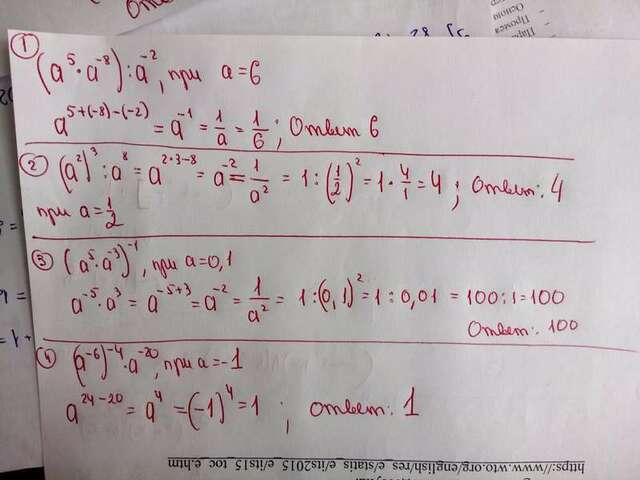 ① (a⁵·a⁻⁸):a⁻², при a=6
a⁵⁺⁽⁻⁸⁾⁻⁽⁻²⁾ = a⁻¹ = 1/a = 1/6; Ответ 6
② (a²)³:a⁸ = a²·³⁻⁸ = a⁻² = 1/a² = 1:(1/2)² = 1·4/1 = 4; Ответ: 4
при a=1/2
③ (a⁵·a⁻³)⁻¹, при a=0,1
a⁻⁵·a³ = a⁻⁵⁺³ = a⁻² = 1/a² = 1:(0,1)² = 1:0,01 = 100:1=100
Ответ: 100
④ (a⁻⁶)⁻⁴·a⁻²⁰, при a=-1
a²⁴⁻²⁰ = a⁴ = (-1)⁴ = 1; ответ: 1
https://www.wto.org/english/res_e/statis_e/its2015_e/its15_toc_e.htm